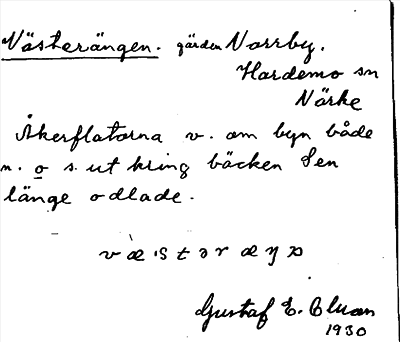 Västerängen. gärden Norrby.
Hardemo sn
Närke
Åkerflatorna v. om byn både
n. o s. ut kring bäcken Sen
länge odlade.
Gustaf E. Eluan
1930